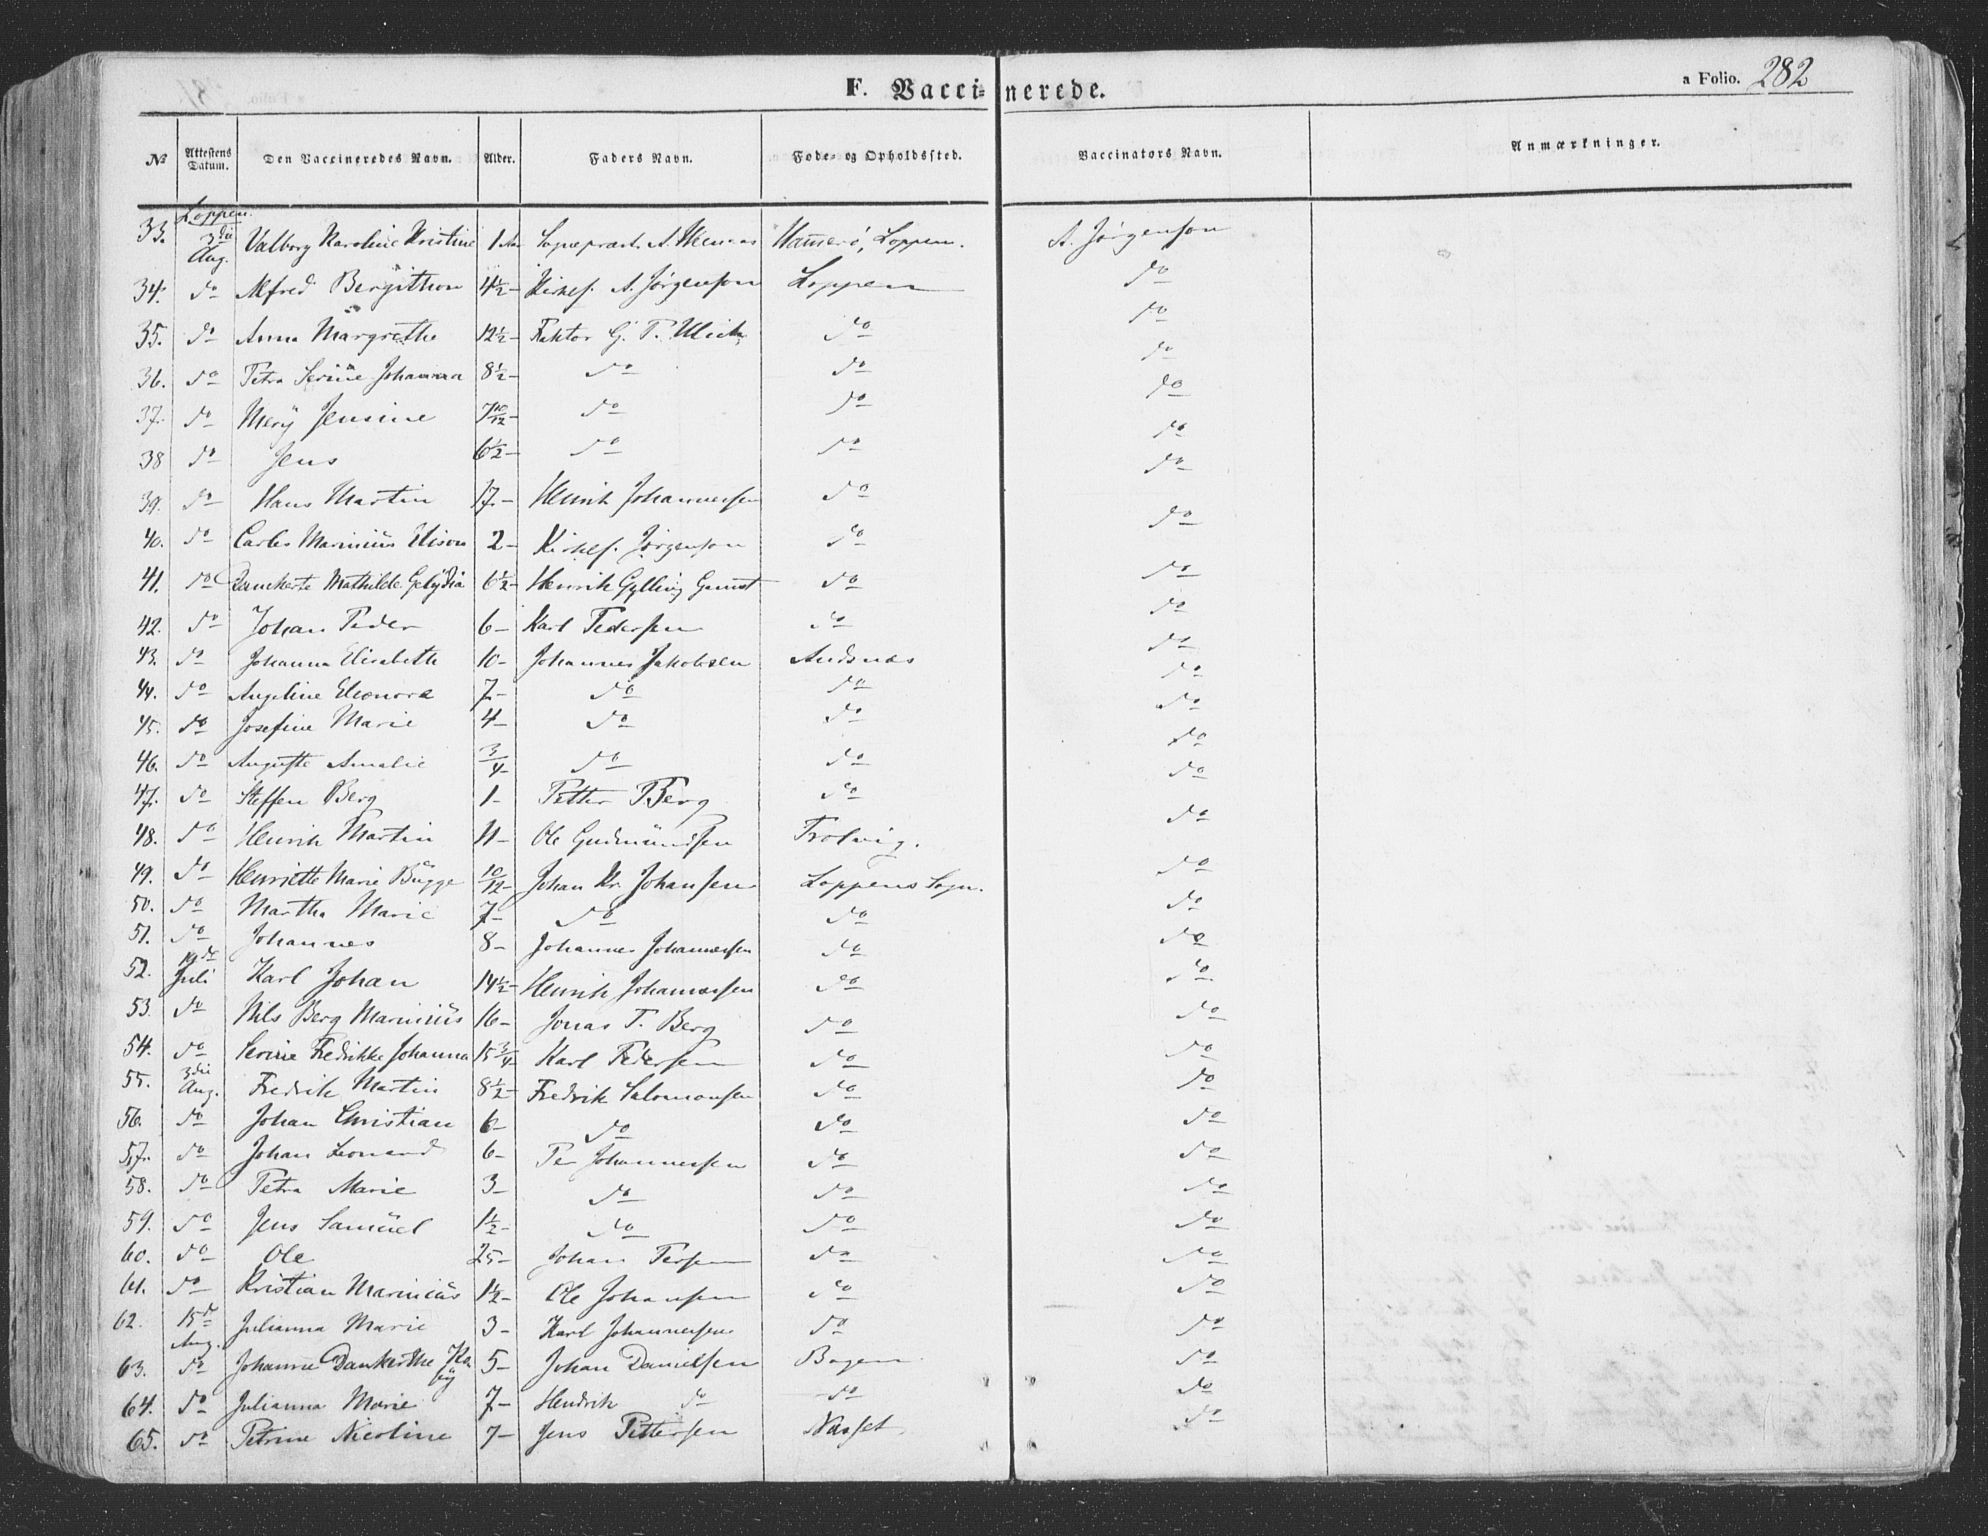 F. Vaccinerede.
a Folio. 282
№ Attestens Datum. Den Vaccineredes Navn. Alder. Faders Navn. Føde- og Opholdssted. Vaccinators Navn. Anmærkninger.
Loppen.
33. 3die Aug. Valborg Karoline Kristine 1 Sognepræst A. Hamerø, Loppen. A. Jørgenson
34. do Alfred Bergithon 4½ – Kirkes. A. Jørgenson Loppen do
35. do Anna Margrethe 12½ – Faktor G. P. Ulich do do
36. do Petra Serine Johanna 8½ – do do do
37. do Mery Jensine 7 10/12 – do do do
38 do Jens 6½ – do do do
39. do Hans Martin 17. – Henrik Johannessen do do
40. do Carles Marinius Elison 2 – Kirkes. Jørgenson do do
41. do Danckerte Mathilde 6½ – Henrik Gylling do do
42. do Johan Peder 6 – Karl Pedersen do do
43. do Johanna Elisabeth 10 – Johannes Jakobsen Andsnæs do
44. do Angeline Eleonora 7 – do do do
45. do Josefine Marie 4 – do do do
46. do Auguste Amalie 3/4 – do do do
47. do Steffen Berg 1 – Petter Berg do do
48. do Henrik Martin 11 – Ole Gudmundsen Trolvig. do
49. do Henriette Marie Bügge 10/12 – Johan Kr. Johansen Loppens Sogn. do
50. do Martha Marie 7 – do do do
51. do Johannes 8 – Johannes Johannessen do do
52. 19de Juli Karl Johan 14½ – Henrik Johannessen do do
53. do Nils Berg Marinius 16 – Jonas T. Berg do do
54. do Serine Fredrikke Johanna 15 3/4 – Karl Pedersen do do
55. 3die Aug. Fredrik Martin 8½ – Fredrik Salomonsen do do
56. do Johan Christian 6 – do do do
57. do Johan Leonard 6 – Per Johannessen do do
58. do Petra Marie 3 – do do do
59. do Jens Samüel 1½ – do do do
60. do Ole 25 – Johan Persen do do
61. do Kristian Marinius 1½ – Ole Johansen do do
62. 15de Aug. Julianna Marie 3 – Karl Johannessen do do
63. do Johanne Dankerthe 5 – Johan Danielsen Bogen do
64. do Julianna Marie 7 – Hendrik do do do
65. do Petrine Nicoline 7 – Jens Pettersen Næsset do